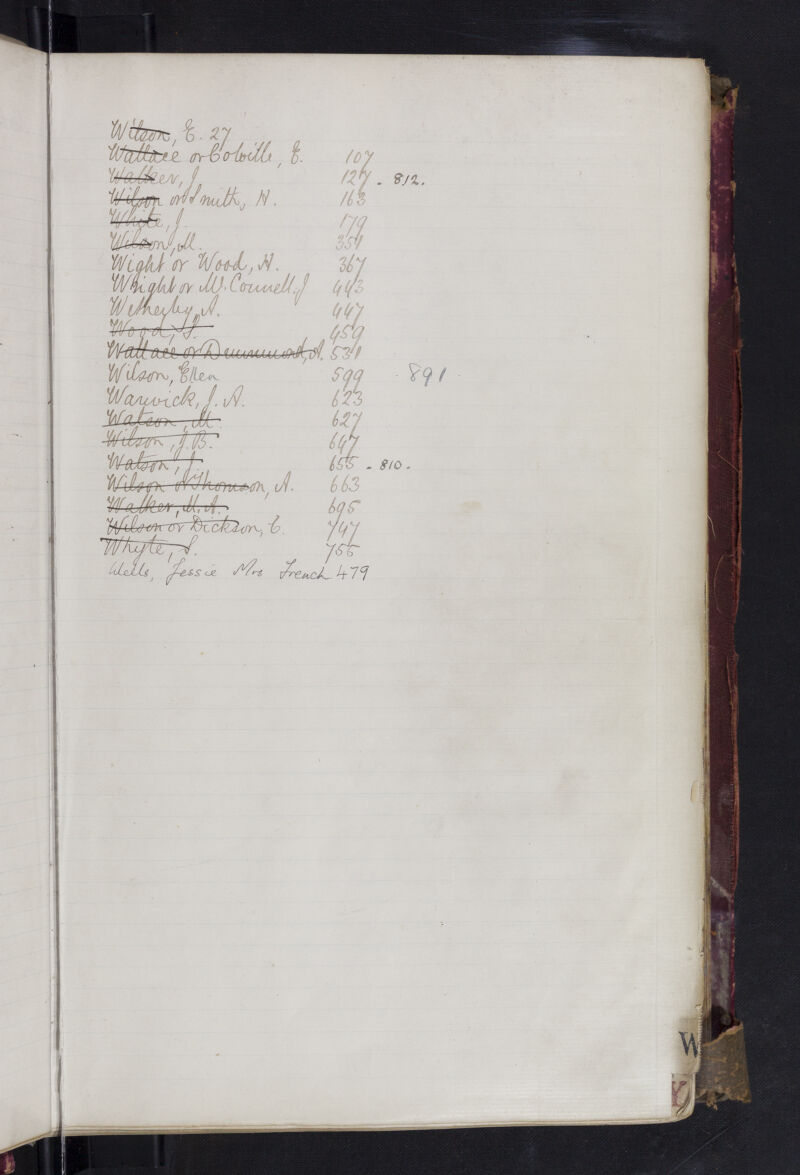 Wilson, E. 27
Wallace or Colville, E. 107
Walker, J. 127 - 812.
Wilson or Smith, H. 163
White, J. 179
Wilson, M. 351
Wight or Wood, H. 367
Wright or Mc.Connell, J 443
Wetherby, A. 447
Wood, S. 459
Wallace or Drummond, A. 531
Wilson, Ellen 599 - 891
Warwick, J. A. 623
Watson, M. 627
Wilson, J. B. 647
Watson, J. 655 - 810.
Wilson or Thomson, A. 663
Walker, M. A. 695
Wilson or Dickson, C. 747
Whyte, S. 755
Wells, Jessie Mrs French 479
W
Y